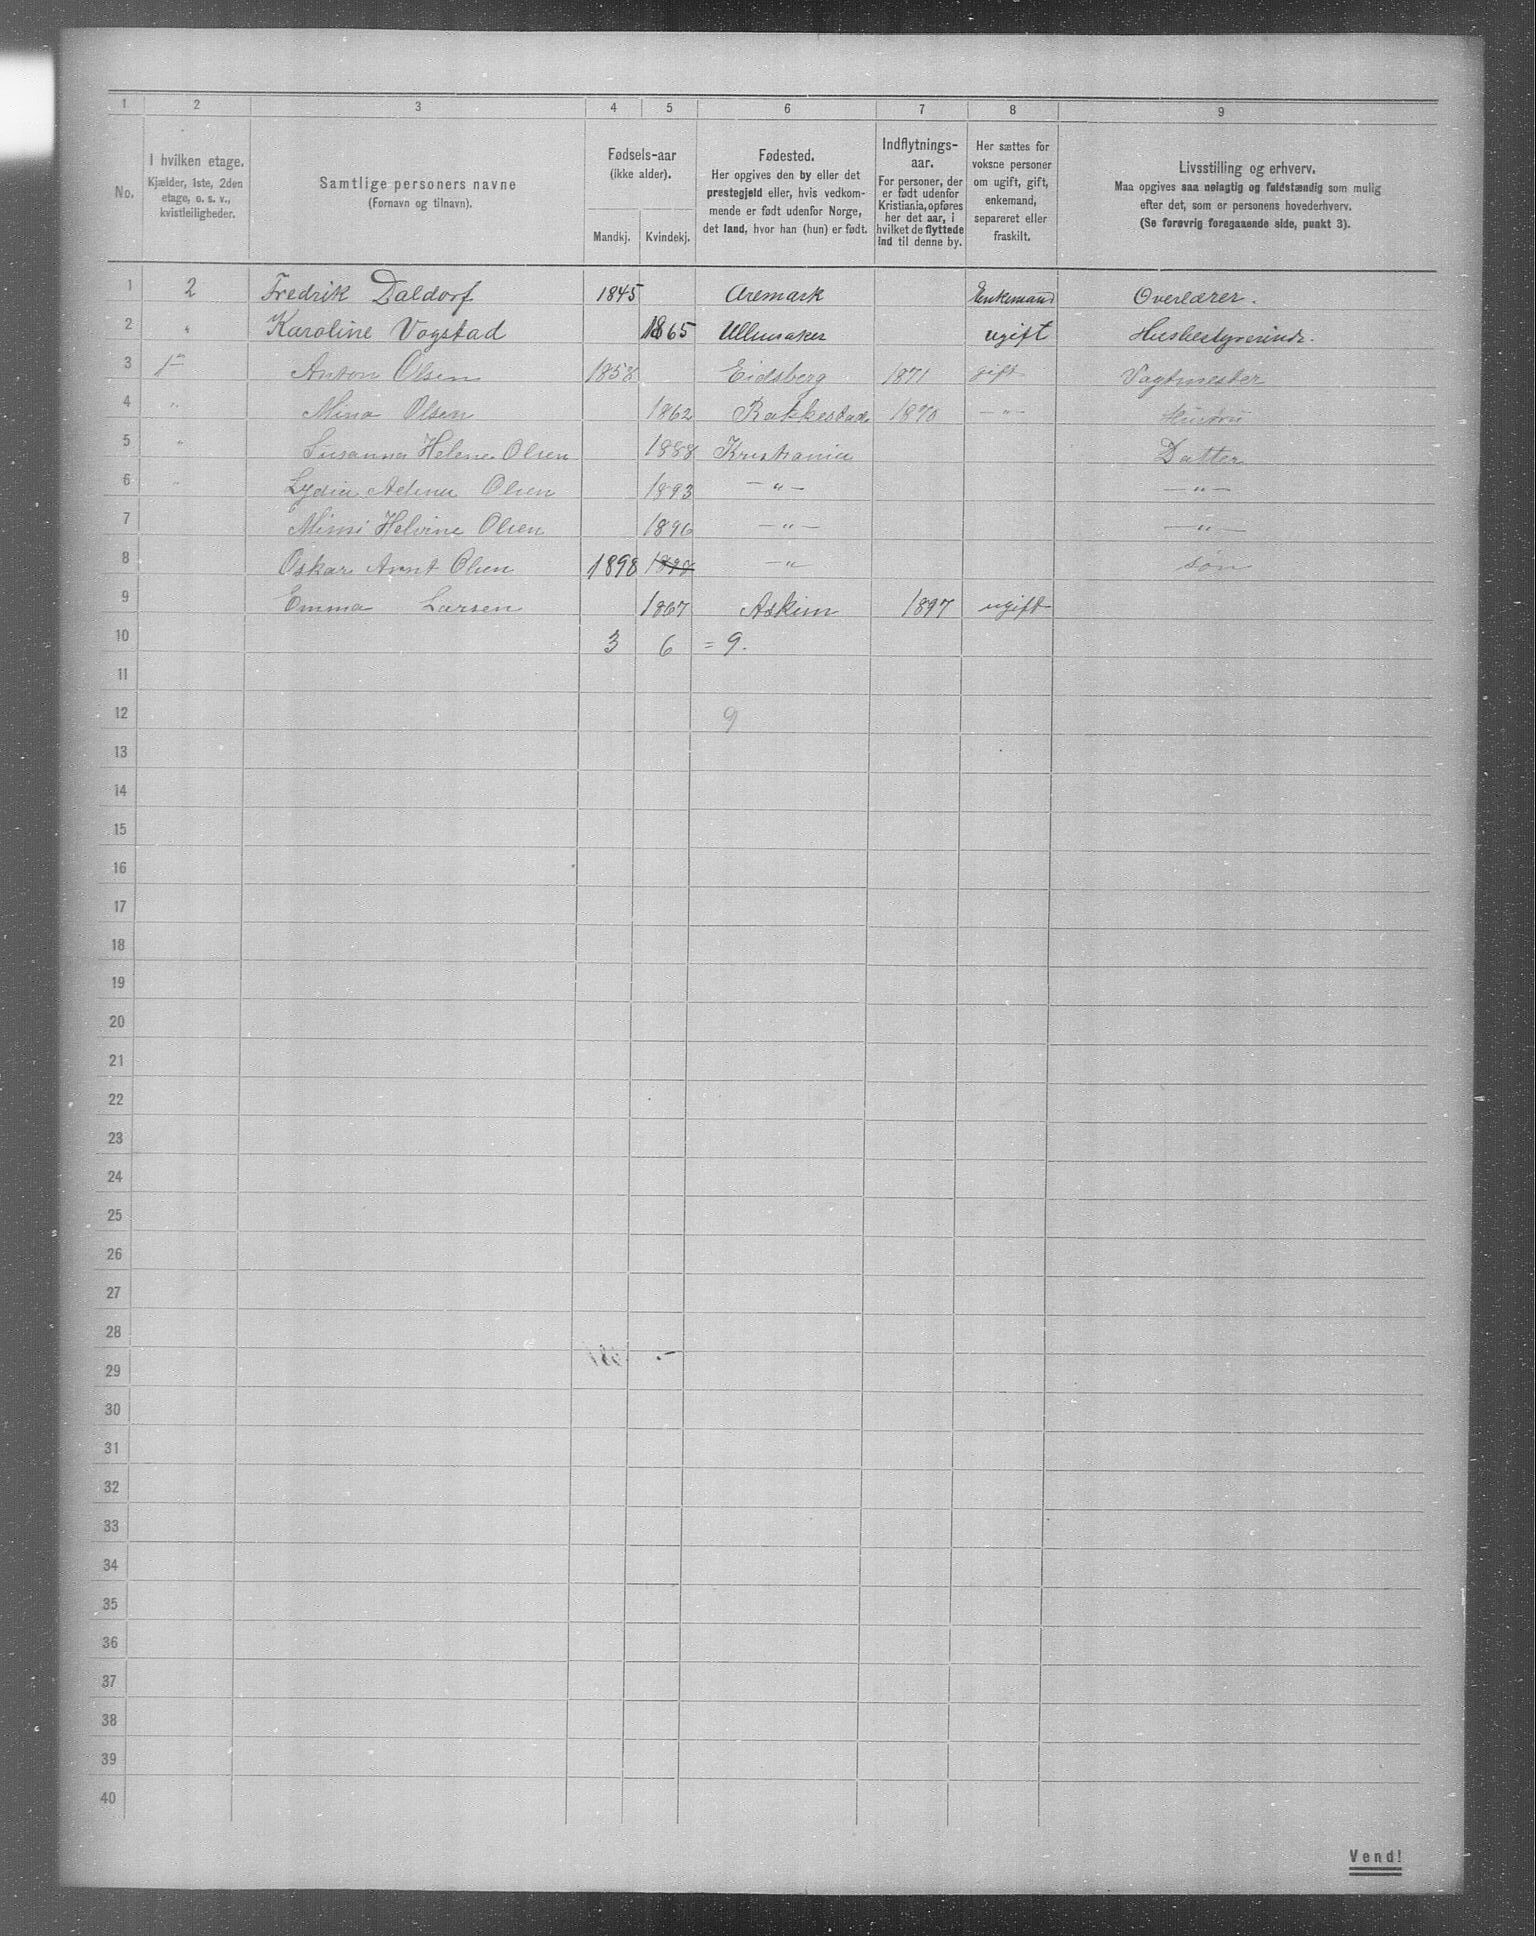 1 2 3 4 5 6 7 8 9
No.
I hvilken etage.
Kjælder, 1ste, 2den
etage, o. s. v.,
kvistleiligheder.
Samtlige personers navne
(Fornavn og tilnavn).
Fødsels-aar
(ikke alder).
Mandkj. Kvindekj.
Fødested.
Her opgives den by eller det
prestegjeld eller, hvis vedkom-
mende er født udenfor Norge,
det land, hvor han (hun) er født.
Indflytnings-
aar.
For personer, der
er født udenfor
Kristiania, opføres
her det aar, i
hvilket de flyttede
ind til denne by.
Her sættes for
voksne personer
om ugift, gift,
enkemand,
separeret eller
fraskilt.
Livsstilling og erhverv.
Maa opgives saa nøiagtig og fuldstændig som mulig
efter det, som er personens hovederhverv.
(Se forøvrig foregaaende side, punkt 3).
1 2 Fredrik Daldorf 1845 Aremark Enkemand Overlærer.
2 " Karoline Vogstad 1865 Ullensaker ugift Husbestyrerinde.
3 1 Anton Olsen 1858 Eidsberg 1871 gift Vagtmester
4 " Mina Olsen 1862 Rakkestad 1870 —"— Hustru
5 " Susanna Helene Olsen 1888 Kristiania Datter
6 " Lydia Adina Olsen 1893 —"— —"—
7 Mimi Helvine Olsen 1896 —"— —"—
8 Oskar Arnt Olsen 1898 1898 —" søn
9 Emma Larsen 1867 Askim 1897 ugift
10 3 6 = 9.
11
12 9
13
14
15
16
17
18
19
20
21
22
23
24
25
26
27
28
29
30
31
32
33
34
35
36
37
38
39
40
Vend!